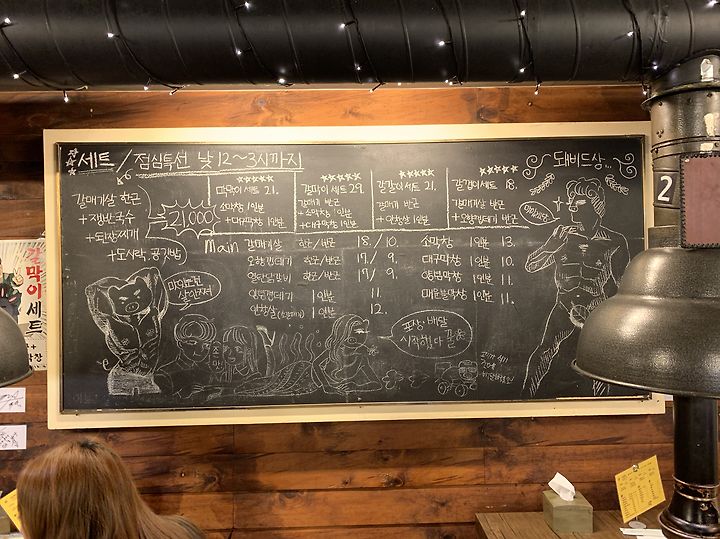 세트 / 점심특선 낮 12~3시까지
갈매기살 한근
+ 쟁반국수
+ 된장찌개
+ 도시락, 공깃밥
21,000
막막이세트 21.
소막창 1인분
+ 대구막창 1인분
갈막이세트 29.
갈매기 반근
+ 소막창 1인분
+ 대구막창 1인분
갈갈이세트 21.
갈매기 반근
+ 안창살 1인분
갈껍이세트 18.
갈매기살 반근
+ 오향껍데기 반근
Main 갈매기살 한근/반근 18./10.
오향껍데기 한근/반근 17./9.
열탄닭갈비 한근/반근 17./9.
양념껍데기 1인분 11.
안창살 1인분 12.
소막창 1인분 13.
대구막창 1인분 10.
양념막창 1인분 11.
매운불막창 1인분 11.
돼비드상...
포장·배달
시작했어
2
갈막이세트